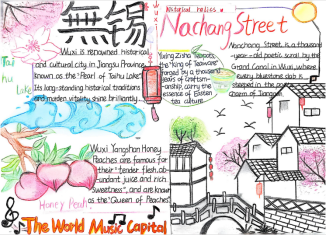 無錫
Wuxi
Tai
hu
Lake
Wuxi is renowned historical
and cultural city in Jiangsu Province,
known as the "Pearl of Taihu Lake".
Its long-standing historical traditions
and modern vitality shine brilliantly.
Historical relics
Nachang Street
Nanchang Street is a thousand
-year-old poetic scroll by the
Grand Canal in Wuxi, where
every bluestone slab is
steeped in the
charm of Jiangnan
Yixing Zisha Teapots,
the "king of Teaware"
forged by a thousand
years of craftsm-
anship, carry the
essence of Eastern
tea culture
Wuxi Yangshan Honey
Peaches are famous for
their "tender flesh, ab-
undant juice and rich
sweetness", and are known
as the "Queen of Peaches"
Honey Peach
The World Music Capital